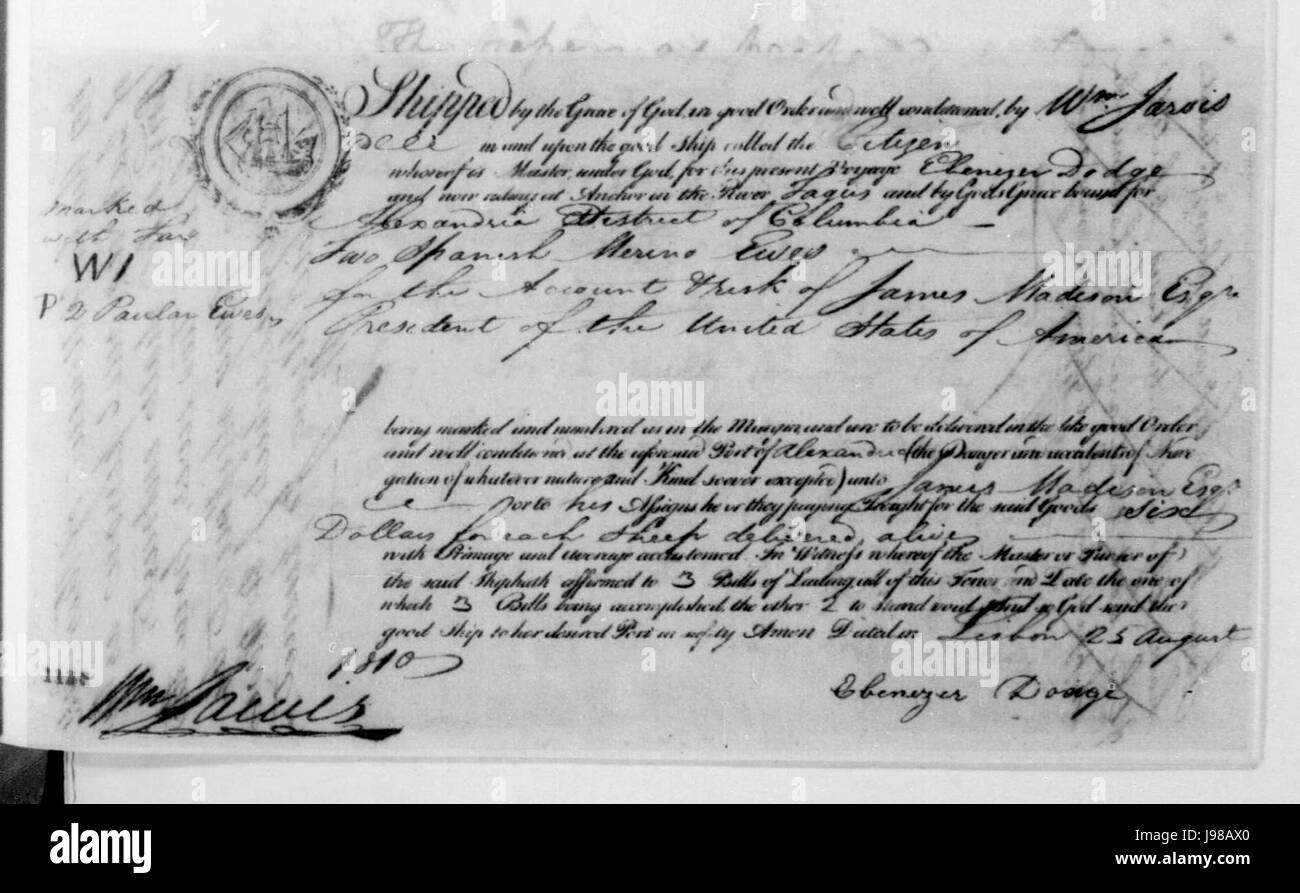 Shipped by the Grace of God, in good Order and well conditioned, by Wm Jarvis
in and upon the good Ship called the Citizen
whereof is Master, under God, for this present Voyage Ebenezer Dodge
and now riding at Anchor in the River Tagus and by Gods Grace bound for
Alexandria District of Columbia
Two Spanish Merino Ewes
for the Account & risk of James Madison Esqr.
President of the United States of America
marked
with
W I
P 2 Paular Ewes
being marked and numbered as in the Margin, and are to be delivered in the like good Order
and well conditioned at the aforesaid Port of Alexandria (the Danger and accidents of Navi
gation of whatever nature and Kind soever excepted) unto James Madison Esqr.
or to his Assigns he or they paying Freight for the said Goods Six
Dollars for each Sheep delivered alive
with Primage and average accustomed. In Witness whereof the Master or Purser of
the said Ship hath affirmed to 3 Bills of Lading all of this Tenor and Date the one of
which 3 Bills being accomplished, the other 2 to stand void And so God send the
good Ship to her desired Port in safety Amen Dated in Lisbon 25 August
1810
Wm Jarvis
Ebenezer Dodge
alamy
alamy
Image ID: J98AX0
www.alamy.com